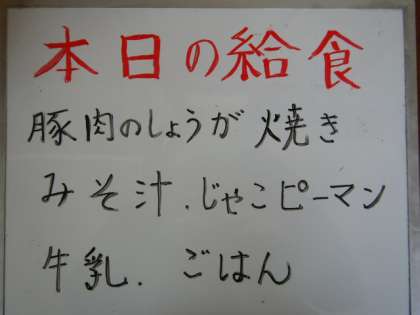 本日の給食
豚肉のしょうが焼き
みそ汁.じゃこピーマン
牛乳. ごはん